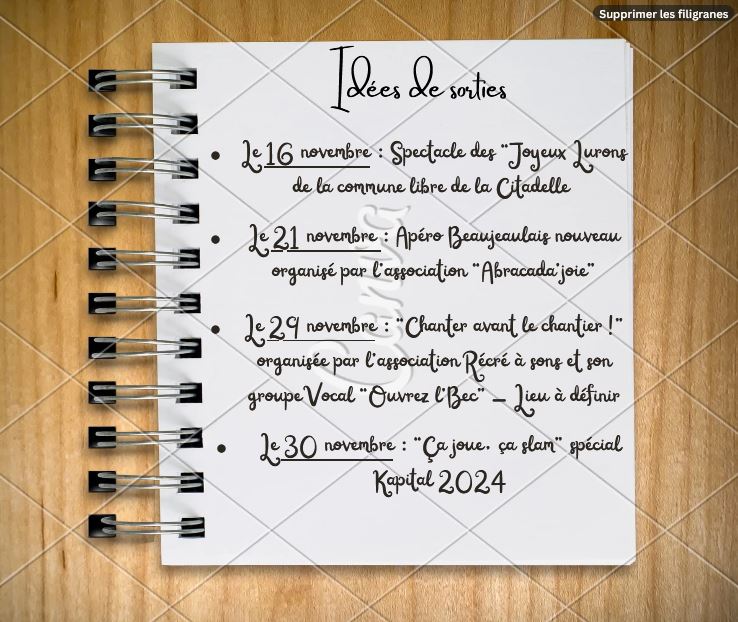 Supprimer les filigranes
Idées de sorties
• Le 16 novembre : Spectacle des "Joyeux Lurons
de la commune libre de la Citadelle
• Le 21 novembre : Apéro Beaujeaulais nouveau
organisé par l'association "Abracada'joie"
• Le 29 novembre : "Chanter avant le chantier !"
organisée par l'association Récré à sons et son
groupe Vocal "Ouvrez l'Bec" – Lieu à définir
• Le 30 novembre : "Ça joue. ça slam" spécial
Kapital 2024
Canva